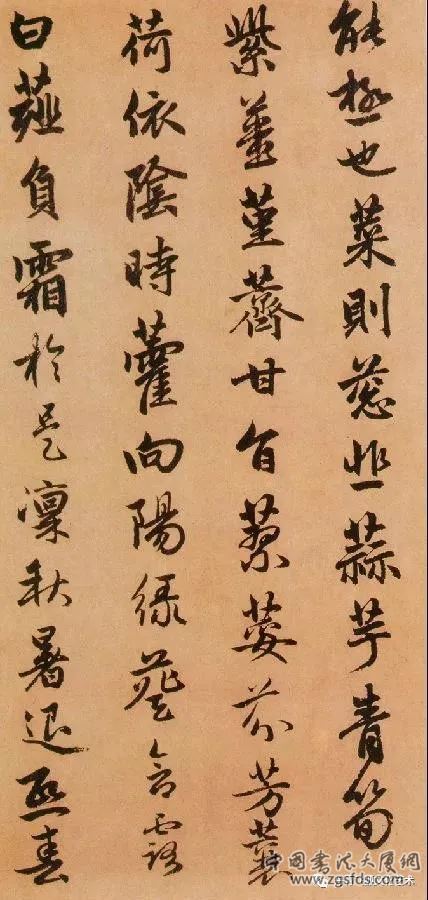 能極也菜則葱韭蒜芋青筍
紫薑堇薺甘旨蓼荽芬芳蘘
荷依陰時藿向陽緑葵含露
白薤負霜於是凜秋暑退熙春
中國書法大厦網
www.zgsfds.com